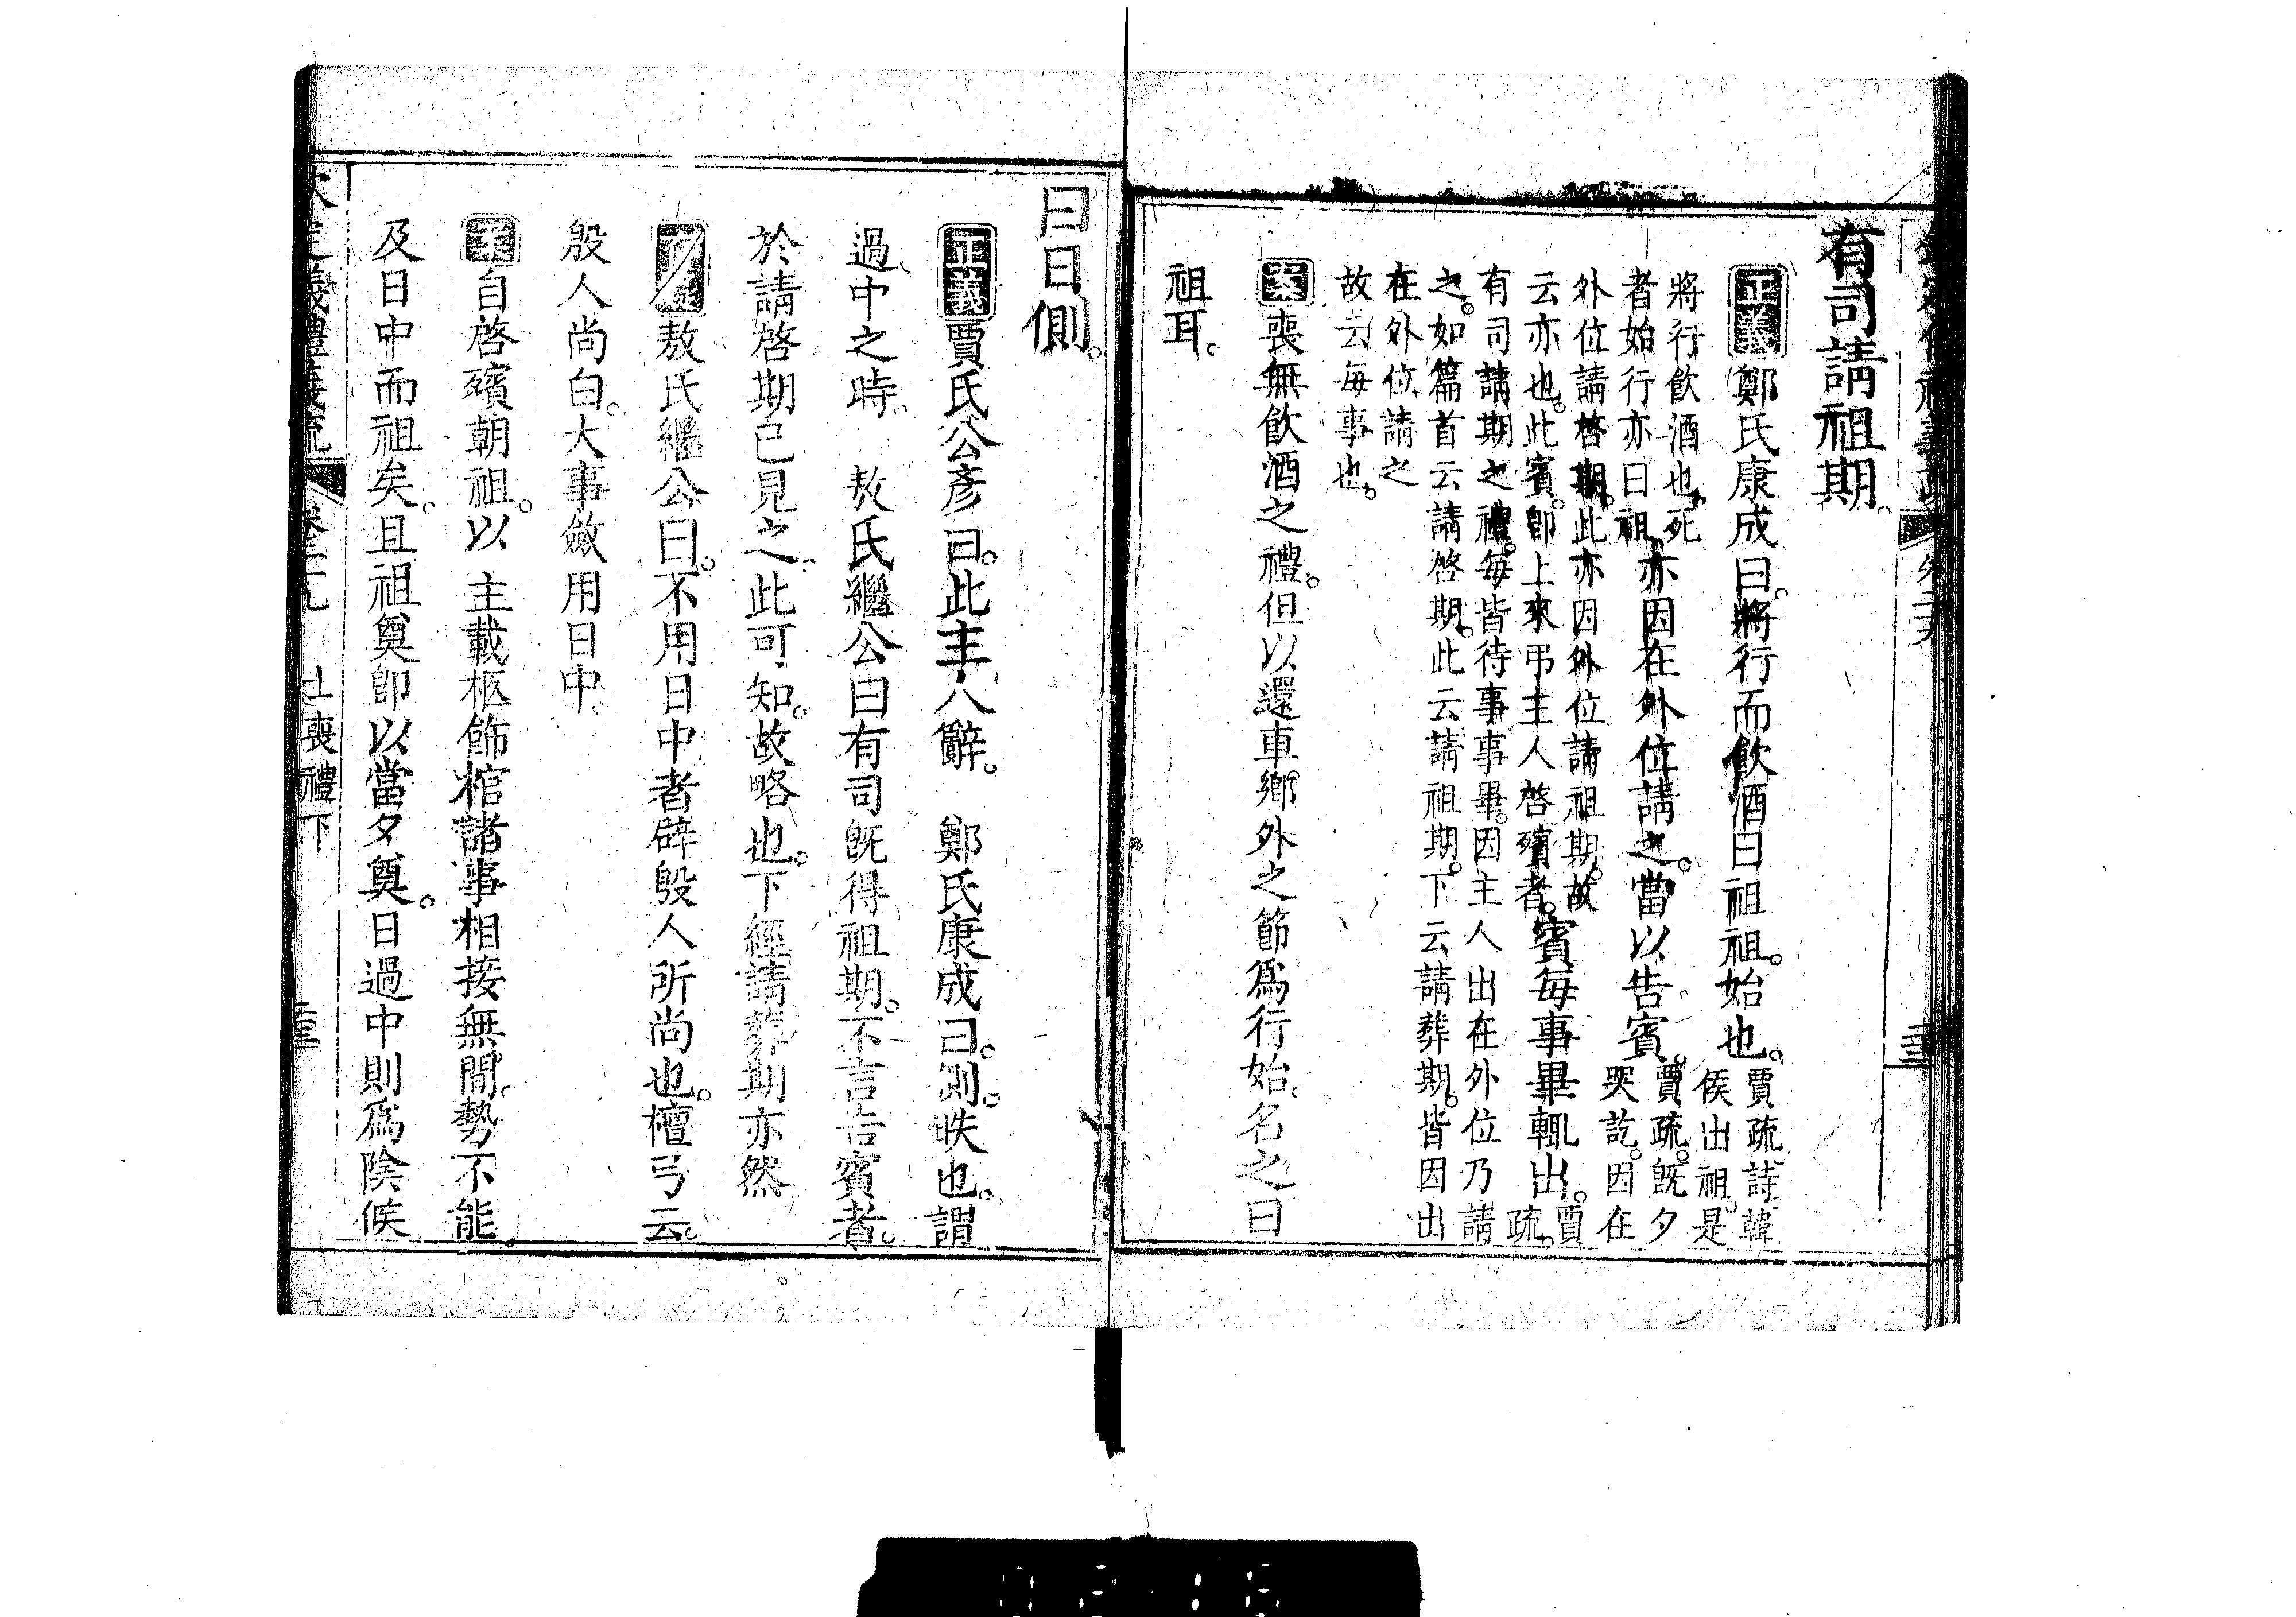 有司請祖期。
正義鄭氏康成曰。將行而飲酒曰祖祖。始也。賈疏詩韓侯出祖。是
將行飲酒也。死者始行亦曰祖。亦因在外位請之。當以告賓。賈疏。既夕哭訖。因在
外位請啓期。此亦因外位請祖期。故云亦也。此賓。卽上來弔主人啓殯者。賓每事畢輒出。賈疏。
有司請期之禮。每皆待事事畢。因主人出在外位乃請之。如篇首云請啓期。此云請祖期。下云請葬期。皆因出
在外位請之故云每事也。
案喪無飲酒之禮。但以還車鄉外之節爲行始。名之曰
祖耳。
曰日側。
正義賈氏公彥曰。此主人辭。 鄭氏康成曰。側。昳也。謂
過中之時。 敖氏繼公曰有司既得祖期。不言告賓者。
於請啓期已見之。此可知。故略也。下經請葬期亦然
敖氏繼公曰。不用日中者辟殷人所尚也。檀弓云。
殷人尚白。大事斂用日中。
案自啓殯朝祖。以主載柩飾棺諸事相接無間。勢不能
及日中而祖矣。且祖奠卽以當夕奠。日過中則爲陰候
欽定儀禮義疏 卷二十九 士喪禮下 三